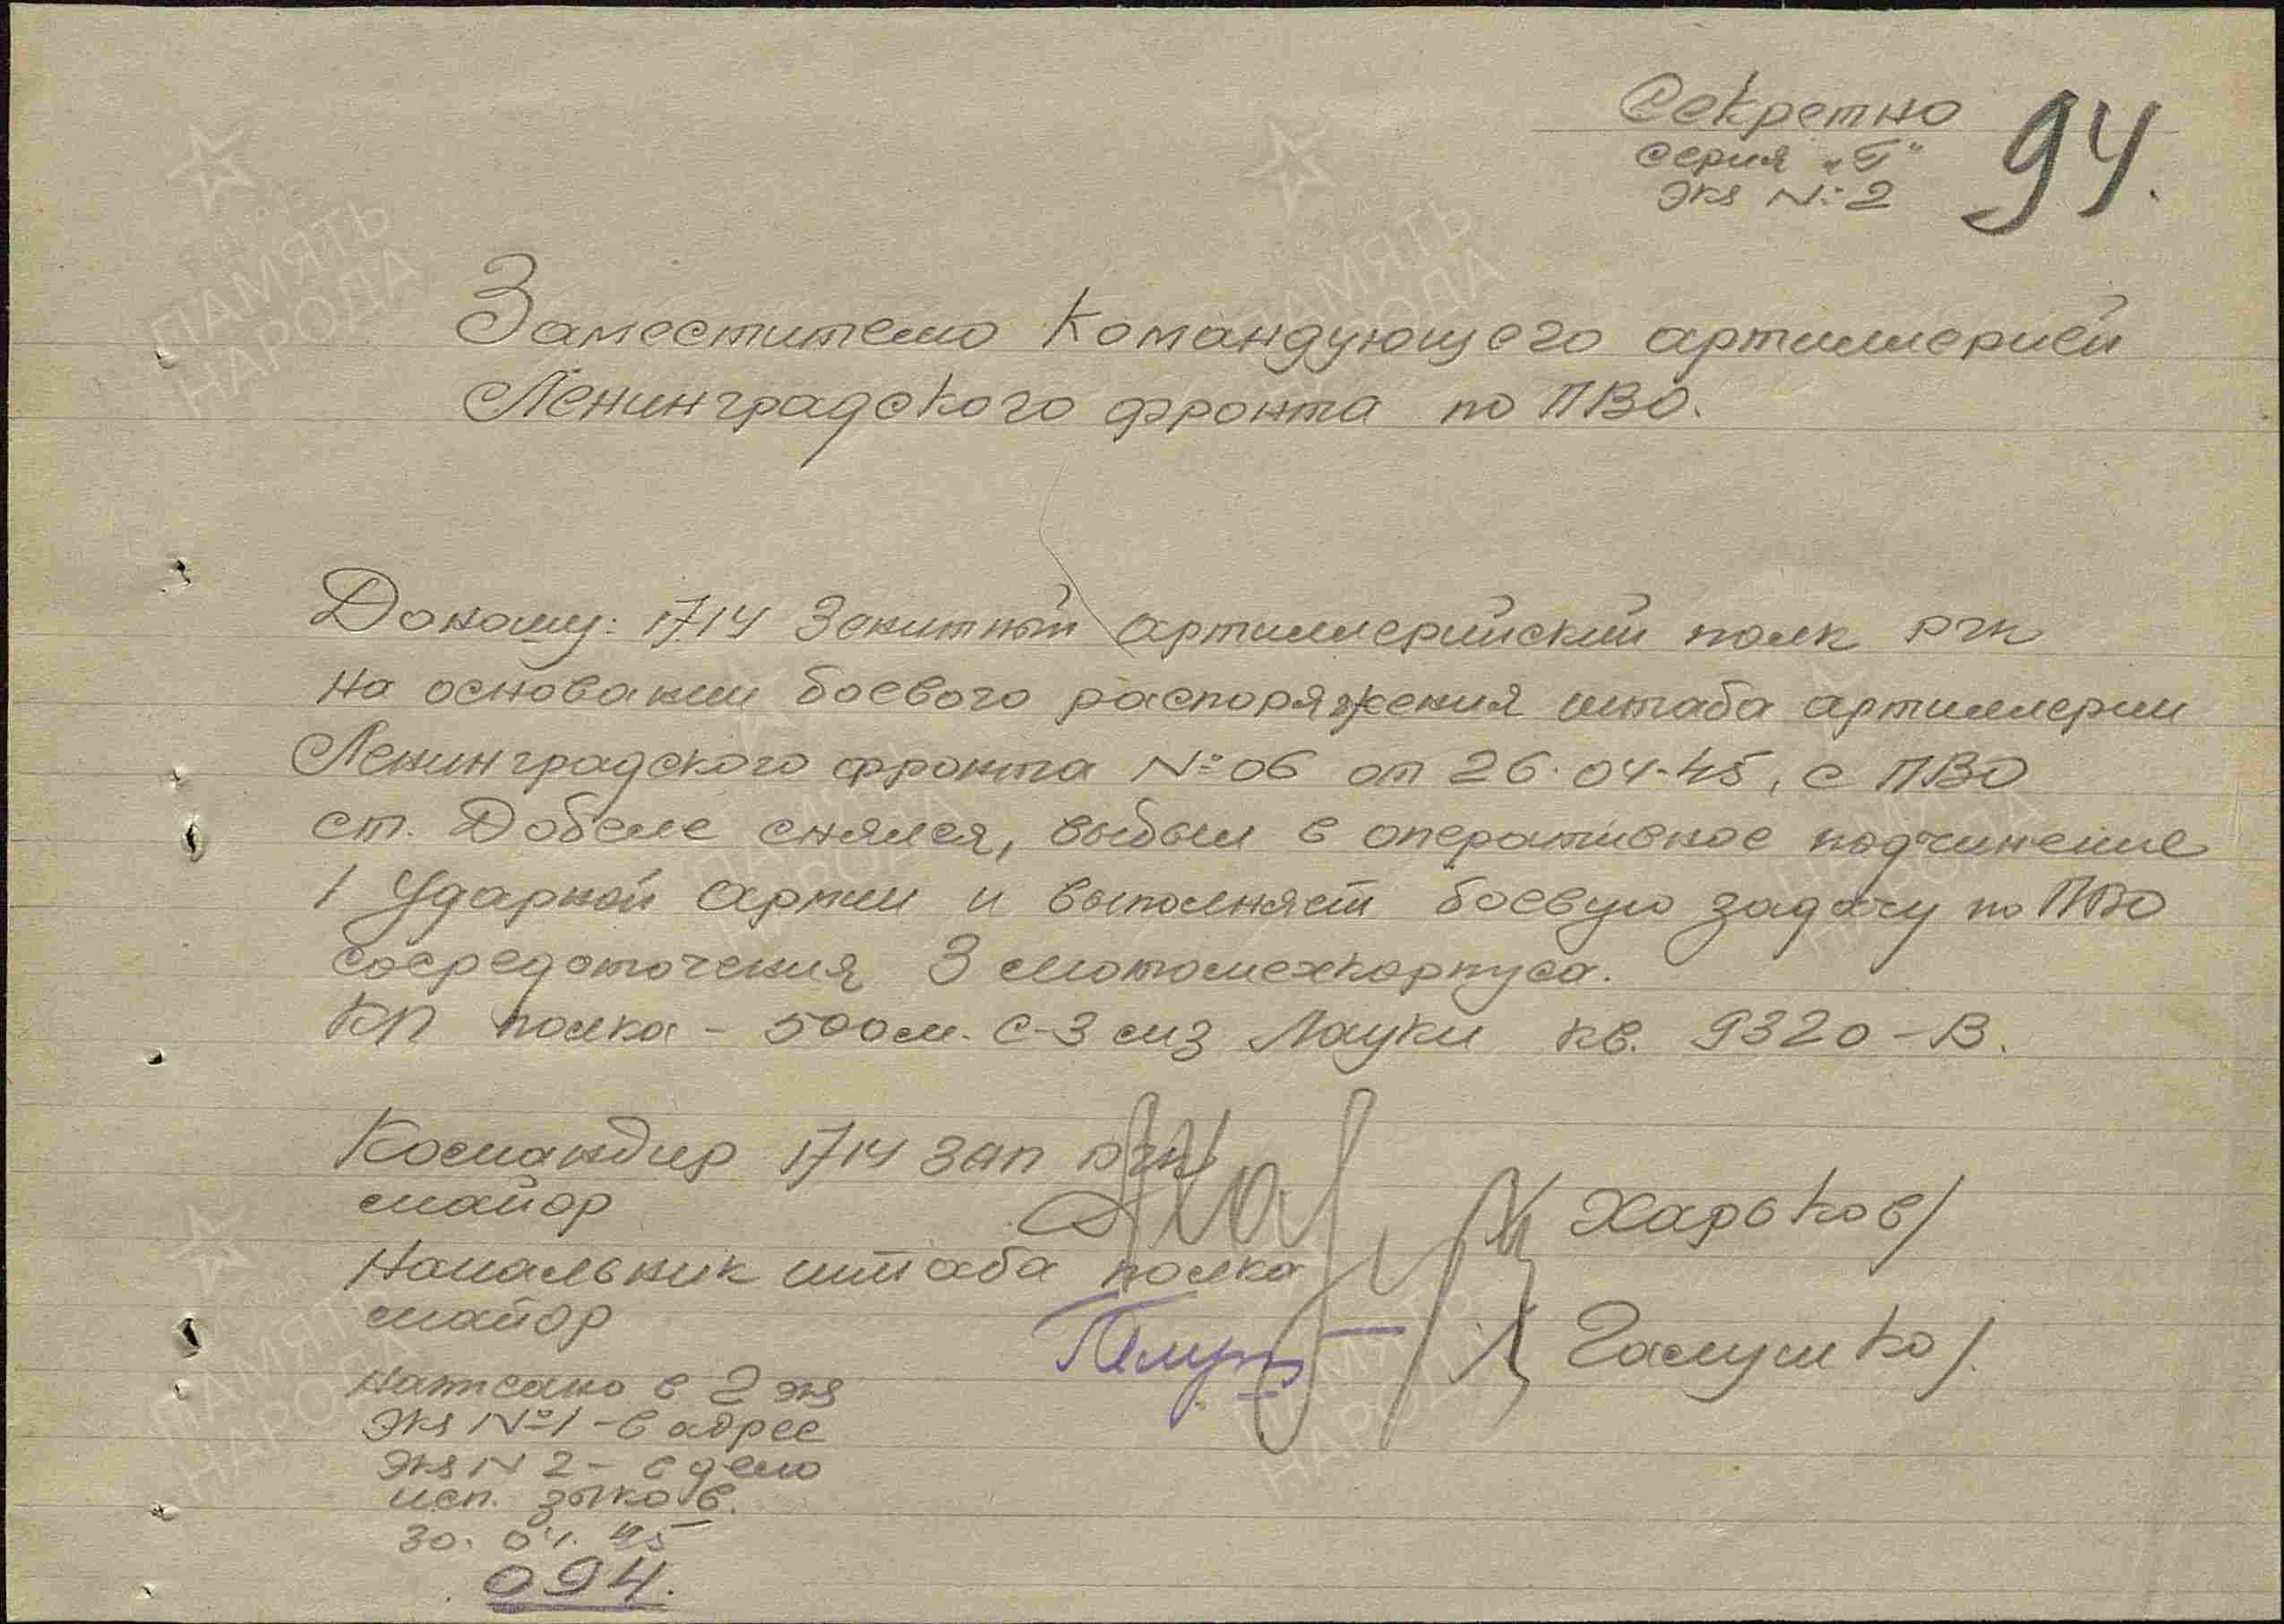 Секретно
серия „Б"
экз №2
94.
Заместителю Командующего артиллерией
Ленинградского фронта по ПВО.
Доношу: 1714 Зенитный артиллерийский полк РГК
на основании боевого распоряжения штаба артиллерии
Ленинградского фронта №06 от 26.04.45, с ПВО
ст. Добеле снялся, выбыл в оперативное подчинение
1 Ударной Армии и выполняет боевую задачу по ПВО
сосредоточения 3 мотомехкорпуса.
КП полка - 500м. с-з мз Лауки кв. 9320-В.
Командир 1714 ЗАП РГК
майор
Харьков/
Начальник штаба полка
майор
Галушко/.
Написано в 2 экз
экз №1 - в адрес
экз N 2 - в дело
исп. Зыков.
30.04.45
094.
ПАМЯТЬ
НАРОДА
ПАМЯТЬ
НАРОДА
ПАМЯТЬ
НАРОДА
ПАМЯТЬ
НАРОДА
ПАМЯТЬ
НАРОДА
ПАМЯТЬ
НАРОДА